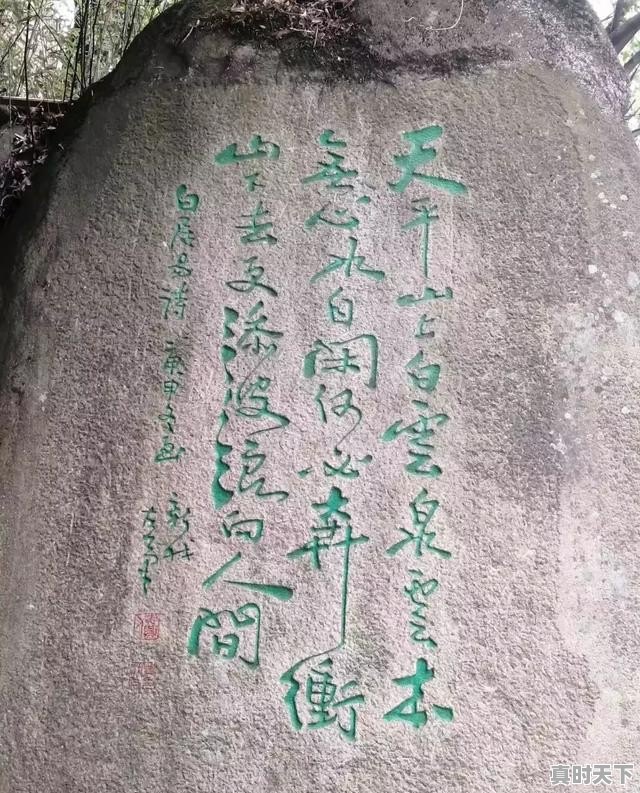 天平山上白雲泉雲本
無心水自閑何必奔衝
山下去更添波浪向人間
白居易詩 庚申冬
新
真时天下